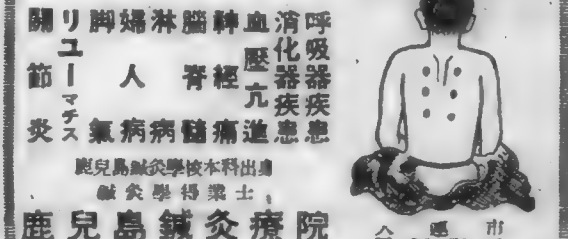 呼吸器疾患
消化器疾患
血壓亢進
神經痛
腦脊髓病
淋病
婦人病
脚氣
リユーマチス
關節炎
鹿兒島鍼灸學校本科出身
鍼灸學得業士
鹿兒島鍼灸療院